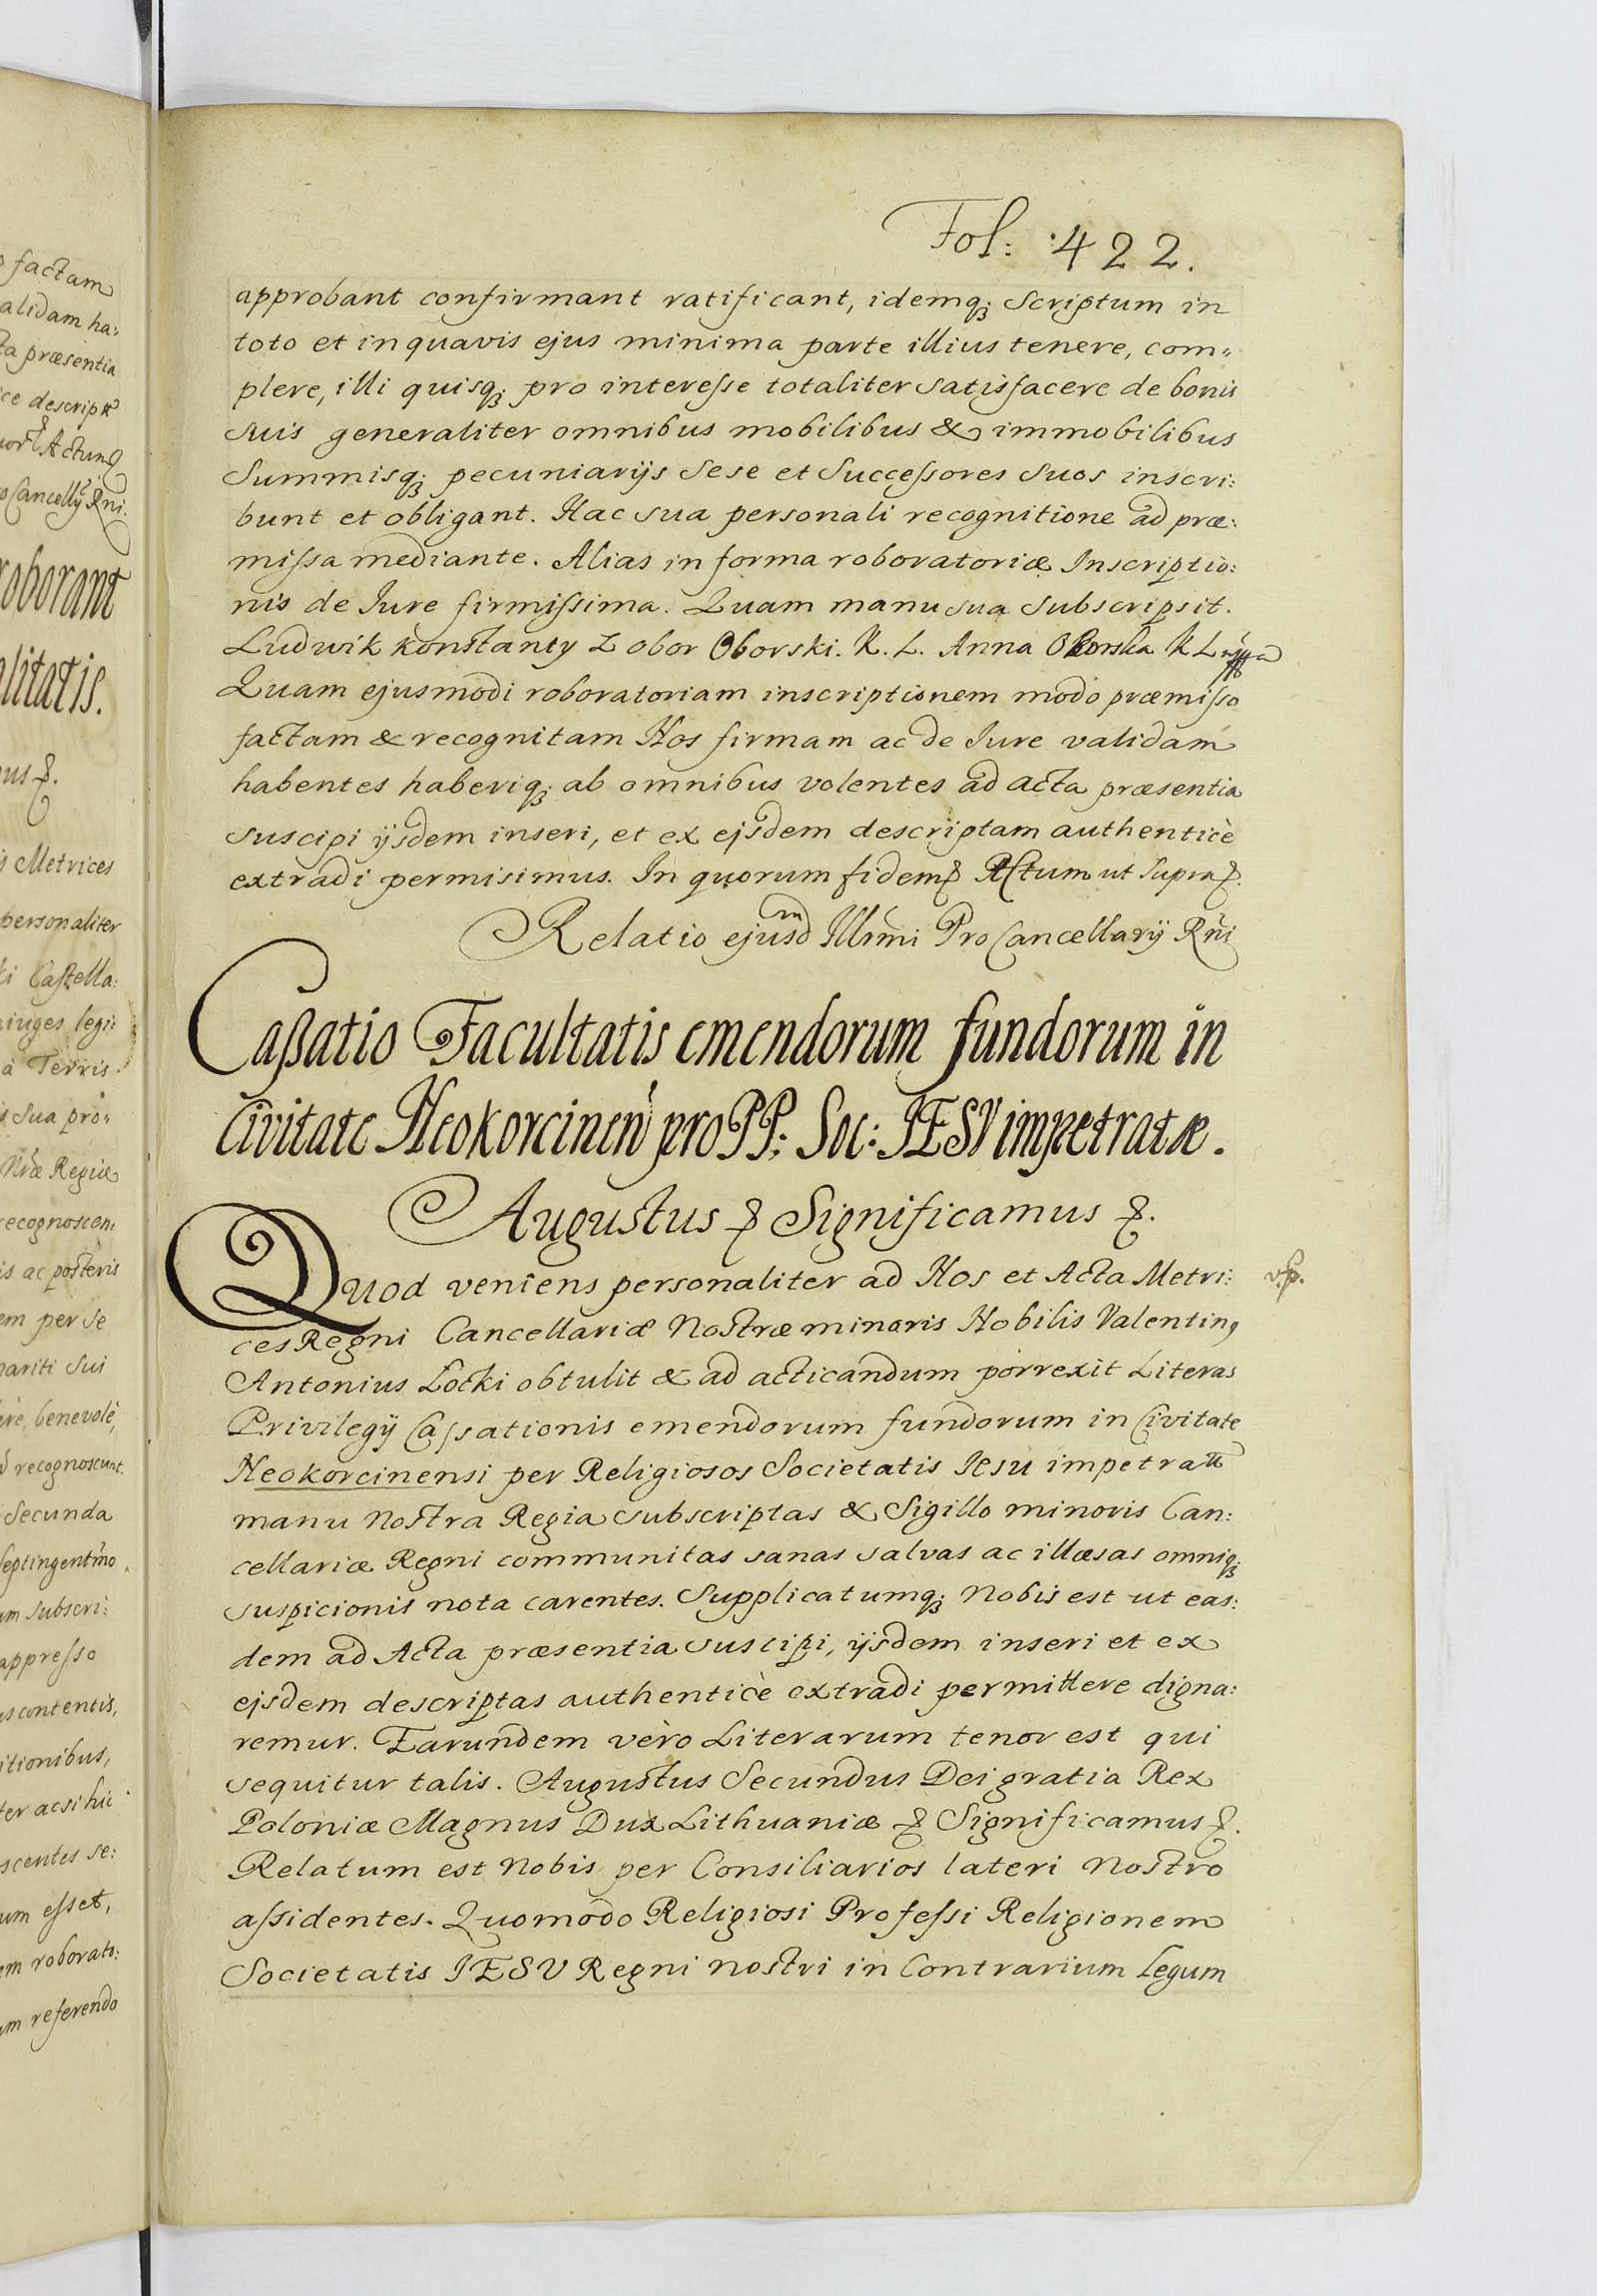 factam
alidam ha:
ta præsentia
ce descript
Actum
Cancellÿ Rni.
roborant
alitatis.
Metrices
personaliter
ki Castella:
iuges legi:
à Terris
sua pro„
Nræ Regiæ
recognoscen
is ac posteris
em per se
mariti sui
ere, benevolè,
recognoscunt.
Secunda
septingentmo
um subscri:
appresso
us contentis,
itionibus,
ter acsi hic
scentes se:
um esset,
em roborato:
um referendo
Fol: 422.
approbant confirmant ratificant, idemq; scriptum in
toto et in quavis ejus minima parte illius tenere, com„
plere, illi quisq; pro interesse totaliter satisfacere de bonis
suis generaliter omnibus mobilibus & immobilibus
Summisq; pecuniarÿs sese et Successores suos inscri:
bunt et obligant. Hac sua personali recognitione ad præ:
missa mediante. Alias in forma roboratoriæ Inscriptio:
nis de Iure firmissima. Quam manu sua subscripsit.
Ludwik konstanty Z obor Oborski. K. L. Anna Oborska K L
Quam ejusmodi roboratoriam inscriptionem modo præmisso
factam & recognitam Nos firmam ac de Iure validam
habentes haberiq; ab omnibus volentes ad acta præsentia
suscipi ÿsdem inseri, et ex ejsdem descriptam authenticè
extradi permisimus. In quorum fidem &. Actum ut supra &.
Relatio ejusdm Illrmi ProCancellarÿ Rñi
Caßatio Facultatis emendorum fundorum in
Civitate Neokorcineñ pro PP: Soc: IESV impetratæ.
Augustus &. Significamus &.
Quod veniens personaliter ad Nos et Acta Metri: v.p.
ces Regni Cancellariæ Nostræ minoris Nobilis Valentin9
Antonius Łocki obtulit & ad acticandum porrexit Literas
Privilegÿ Cassationis emendorum fundorum in Civitate
Neokorcinensi per Religiosos Societatis Iesu impetratt
manu nostra Regia subscriptas & Sigillo minoris Can:
cellariæ Regni communitas sanas salvas ac illæsas omniq;
suspicionis nota carentes. Supplicatumq; Nobis est ut eas:
dem ad Acta præsentia suscipi, ÿsdem inseri et ex
ejsdem descriptas authenticè extradi permittere digna:
remur. Earundem vero Literarum tenor est qui
sequitur talis. Augustus Secundus Dei gratia Rex
Poloniæ Magnus Dux Lithuaniæ &. Significamus &.
Relatum est Nobis per Consiliarios lateri nostro
assidentes. Quomodo Religiosi Professi Religionem
Societatis IESV Regni nostri in Contrarium Legum